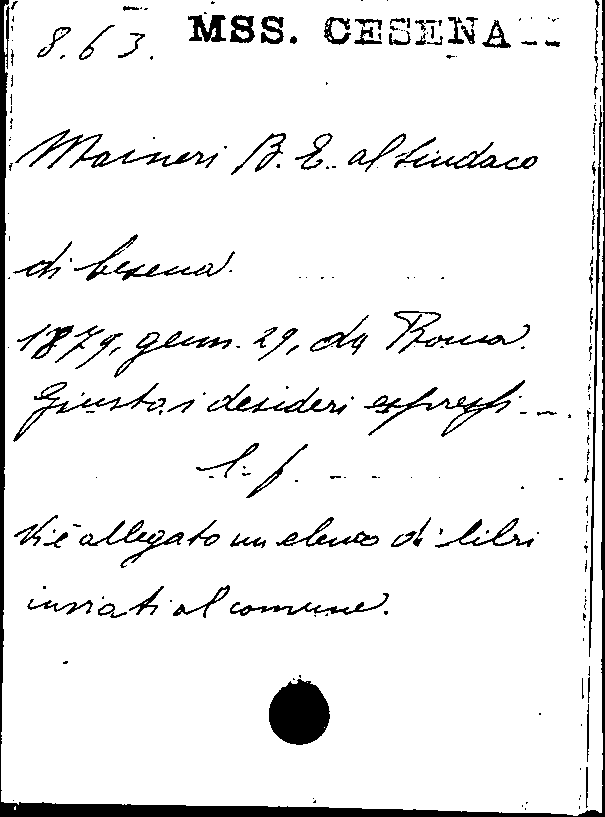 8.63. MSS. CESENA
Maineri B. E. al Sindaco
di Cesena.
1879, genn. 29, da Roma.
Giusta i desideri espressi...
l. f.
Vi è allegato un elenco di libri
inviati al comune.